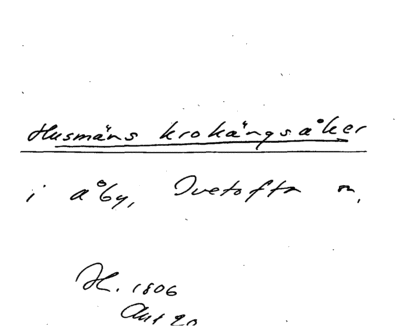 Husmäns krokängsåker
i åby, Ivetofta n,
H. 1806
Akt 20